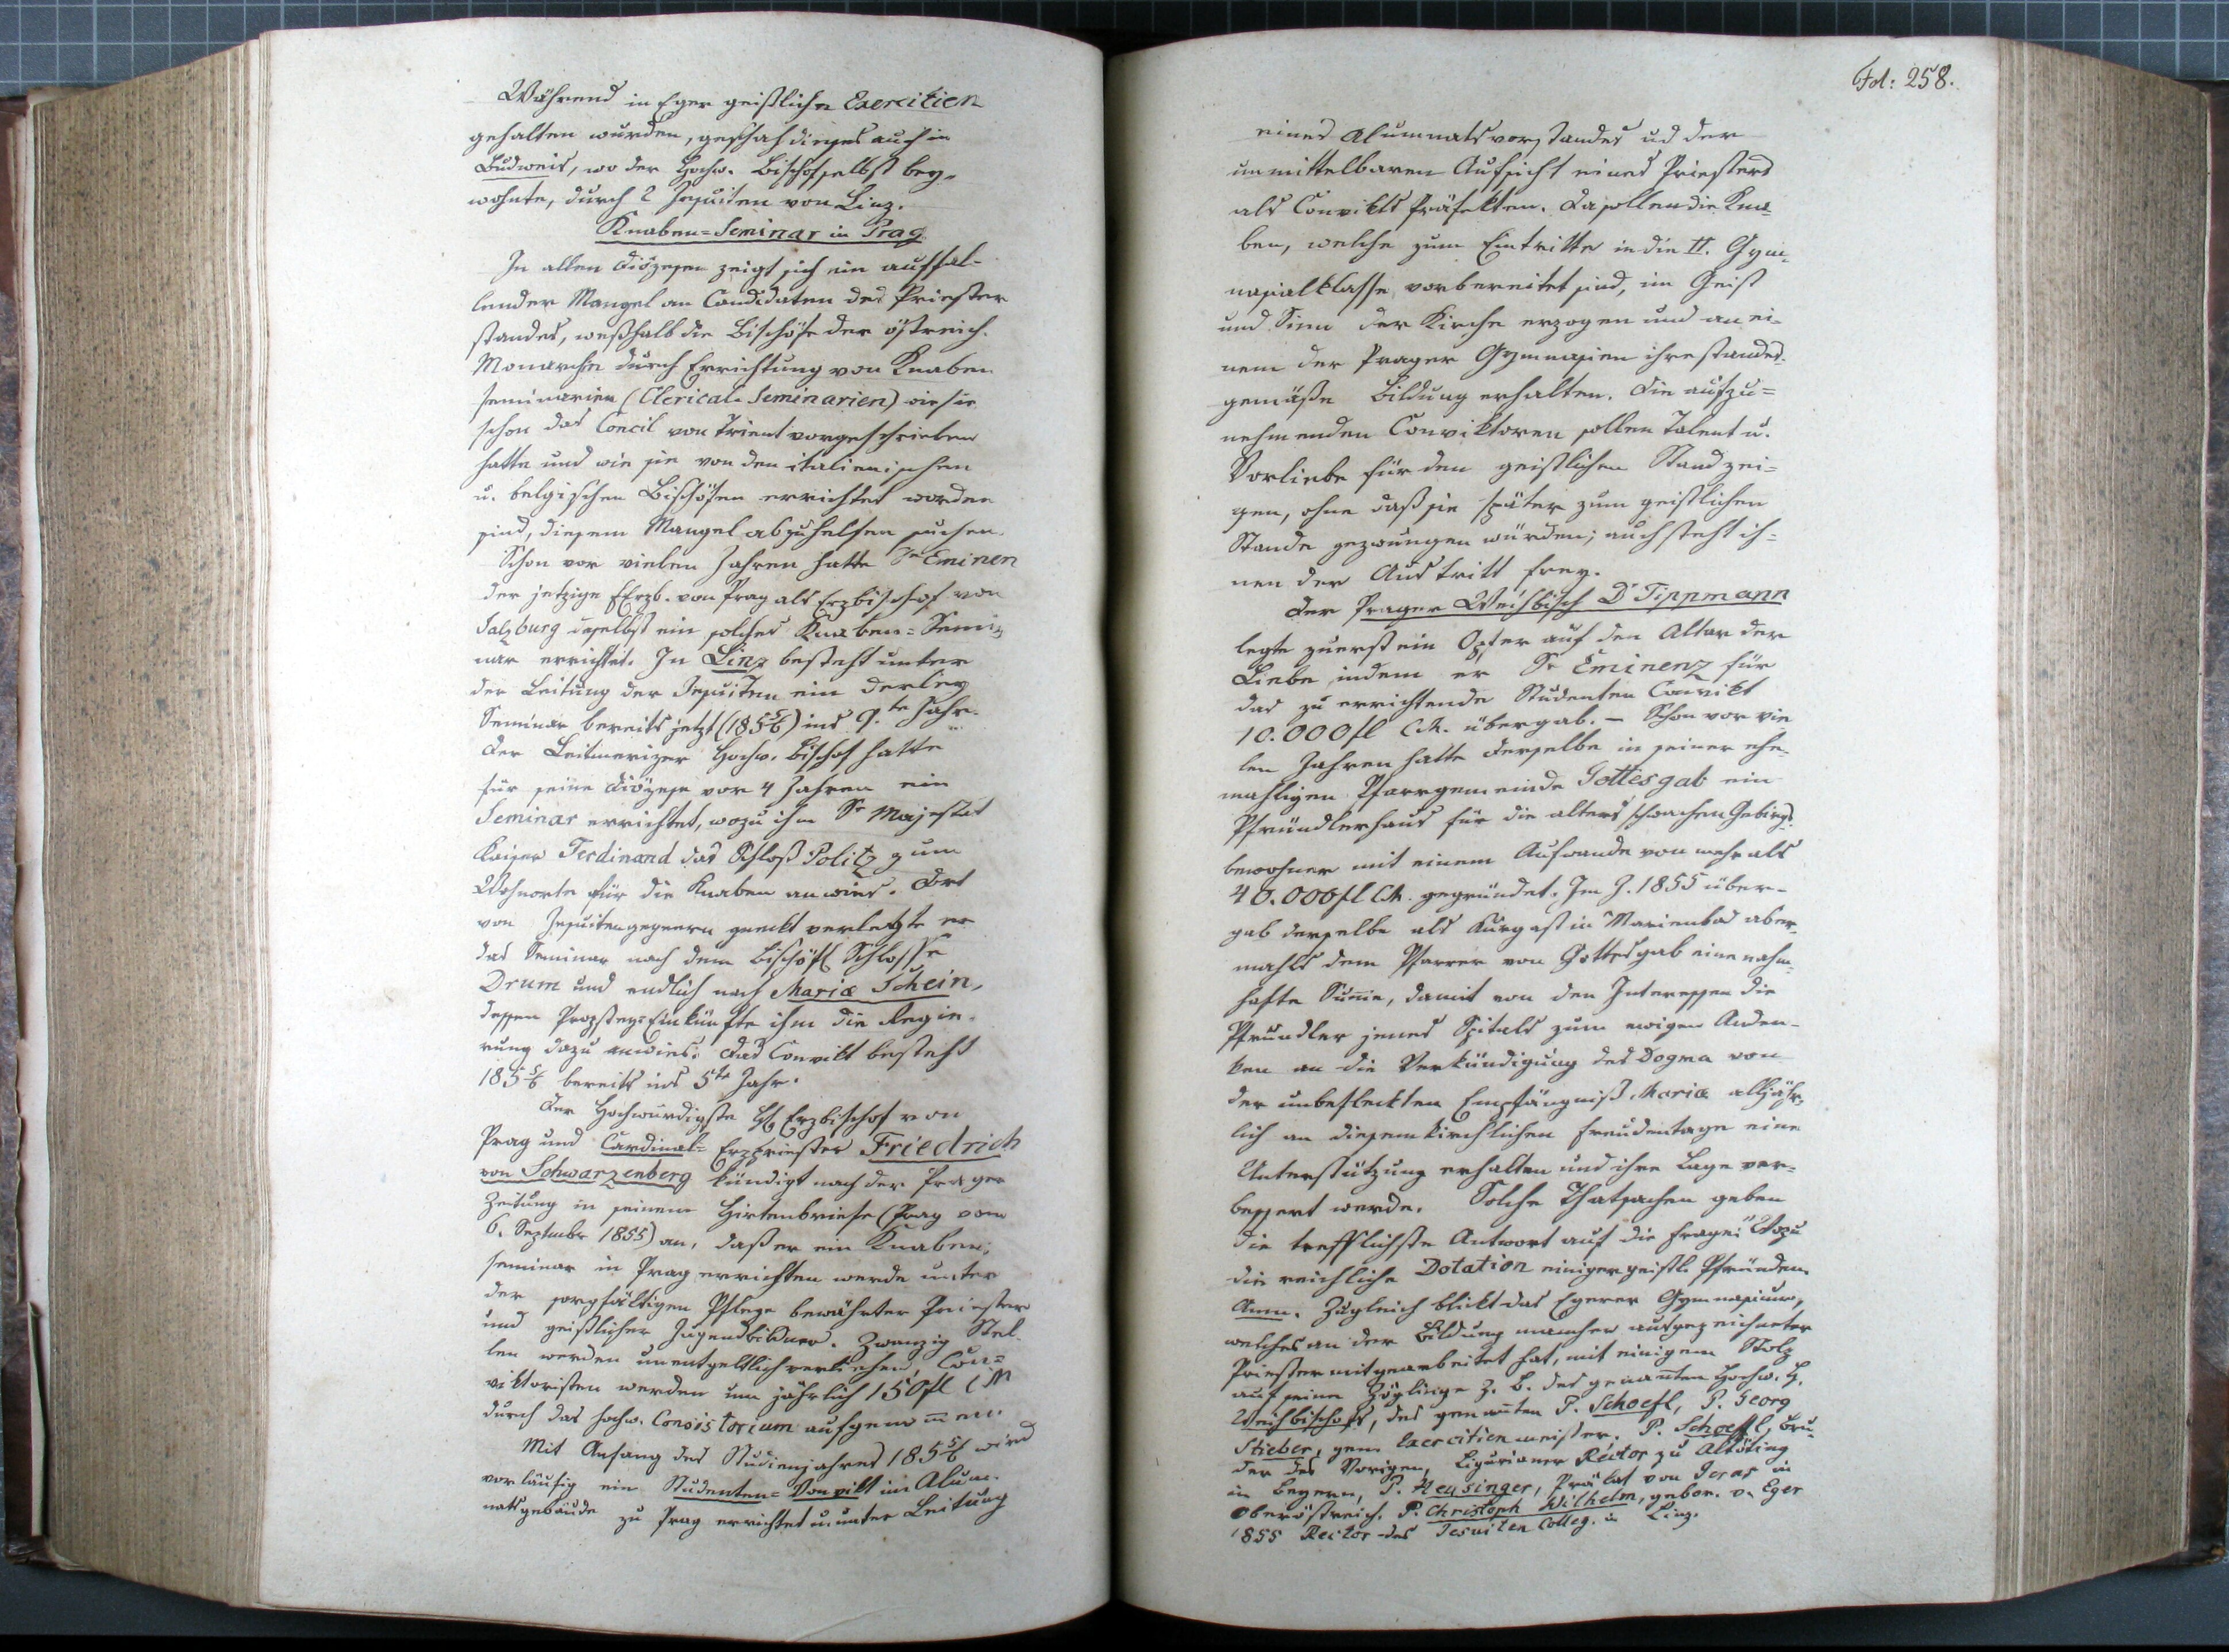 Während in Eger geistlichen Exercitien
gehalten wurden, geschah dieses auch in
Budweis, wo der Hochw. Bischof selbst bey-
wohnte, durch 2 Jesuiten von Linz.
Knaben=Seminar in Prag
In allen Diözesen zeigt sich ein auffal-
lender Mangel an Candidaten des Priester
standes, weßhalb die Bischöfe der östreich.
Monarchie durch Errichtung von Knaben
seminarien (Clerical-Seminarien) wie sie
schon das Concil von Trient vorgeschrieben
hatte und wie sie von den italienischen
u. belgischen Bischöfen errichtet worden
sind, diesem Mangel abzuhelfen suchen.
Schon vor vielen Jahren hatte Se Eminen
der jetzige FErzb. von Prag als Erzbischof von
Salzburg daselbst ein solches Knaben=Semi-
nar errichtet. In Linz besteht unter
der Leitung der Jesuiten ein derley
Seminar bereits jetzt (1855/6) ins 9.te Jahr.
Der Leitmerizer Hochw. Bischof hatte
für seine Diözese vor 4 Jahren ein
Seminar errichtet, wozu ihm Sr Majestät
Kaiser Ferdinand das Schloß Politz zum
Wohnorte für die Knaben anwies. Dort
von Jesuitengegnern geneckt verlegte er
das Seminar nach dem Bischöfl Schlosse
Drum und endlich nach Mariæ Schein,
dessen Propstey=Einkünfte ihm die Regie-
rung dazu anwies: Das Convikt besteht
1855/6 bereits ins 5te Jahr.
Der Hochwürdigste H Erzbischof von
Prag und Cardinal= Erzpriester Friedrich
von Schwarzenberg kündigt nach der Prager
Zeitung in seinem Hirtenbriefe (Prag vom
6. September 1855) an, daß er ein Knaben-
seminar in Prag errichten werde unter
der sorgfältigen Pflege bewährter Priester
und geistlicher Jugendbildner. Zwanzig Stel-
len werden unentgeltlich verliehen, Con=
viktoristen werden um jährlich 150 fl CM
durch das hochw. Consistorium aufgenommen.
Mit Anfang des Studienjahres 1855/6 wird
vorläufig ein Studenten=Konvikt im Alum-
natsgebäude zu Prag errichtet u. unter Leitung
Fol: 258.
eines Alumnatsvorstandes ud der
unmittelbaren Aufsicht eines Priesters
als Convikts Präfekten. Da sollen die Kna-
ben, welche zum Eintritte in die II. Gym-
nasialklasse vorbereitet sind, im Geist
und Sinn der Kirche erzogen und an ei-
nem der Prager Gymnasien ihre standes-
gemäße Bildung erhalten. Die aufzu=
nehmenden Conviktoren sollen Talent u.
Vorliebe für den geistlichen Stand zei=
gen, ohne daß sie später zum geistlichen
Stande gezwungen würden; auch steht ih=
nen der Austritt frey.
Der Prager Weihbisch Dr Tippmann
legte zuerst ein Opfer auf den Altar der
Liebe, indem er Sr Eminenz für
das zu errichtende Studenten Convikt
10.000 fl C.M. übergab. - Schon vor vie
len Jahren hatte derselbe in seiner ehe-
mahligen Pfarrgemeinde Gottesgab ein
Pfründlerhaus für die altersschwachen Gebirgs-
bewohner mit einem Aufwande von mehr als
40.000 fl CM. gegründet. Im J. 1855 über-
gab derselbe als Kurgast in Marienbad aber-
mahls dem Pfarrer von Gottesgab eine nahm-
hafte Summe, damit von den Interessen die
Pfründler jenes Spitals zum ewigen Anden-
ken an die Verkündigung des Dogma von
der unbefleckten Empfängniß Mariæ alljähr-
lich an diesem kirchlichen Freudentage eine
Unterstützung erhalten und ihre Lage ver-
bessert werde. Solche Thatsachen geben
die trefflichste Antwort auf die Frage: "Wozu
die reichliche Dotation einiger geistl. Pfründen.
Anm. Zugleich blickt das Egerer Gymnasium,
welches an der Bildung mancher ausgezeichneter
Priester mitgearbeitet hat, mit einigem Stolz
auf seine Zöglinge z. B. des genannten Hochw. H.
Weihbischofs, des genannten P. Schoefl, P. Georg
Stieber, gen. Exercitienmeister. P. Schoeffl, Bru-
der des Vorigen, Ligurianer Rector zu Altöting
in Beyern, P. Heusinger, Prälat von Geras in
Oberöstreich. P. Christoph Wilhelm, gebor. v. Eger
1855 Rector des Jesuiten Colleg. in Linz.